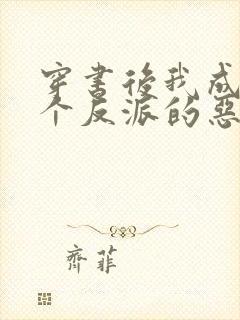 穿書後我成
个反派的惡
齊菲